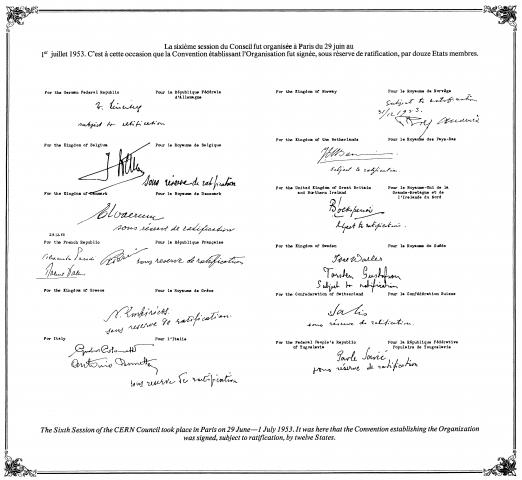 La sixième session du Conseil fut organisée à Paris du 29 juin au
1er juillet 1953. C'est à cette occasion que la Convention établissant l'Organisation fut signée, sous réserve de ratification, par douze Etats membres.
For the German Federal Republic Pour la République Fédérale
d'Allemagne
subject to ratification
For the Kingdom of Belgium Pour le Royaume de Belgique
sous réserve de ratification
For the Kingdom of Denmark Pour le Royaume de Danemark
sous réserve de ratification
For the French Republic Pour la République Française
sous reserve de ratification
For the Kingdom of Greece Pour le Royaume de Grèce
sous reserve de ratification
For Italy Pour l'Italie
sous reserve de ratification
For the Kingdom of Norway Pour le Royaume de Norvège
Subject to ratification
31/12/1953
For the Kingdom of the Netherlands Pour le Royaume des Pays-Bas
subject to ratification
For the United Kingdom of Great Britain
and Northern Ireland Pour le Royaume-Uni de la
Grande-Bretagne et de
l'Irelande du Nord
Subject to ratification.
For the Kingdom of Sweden Pour le Royaume de Suède
Torsten Gustafson
Subject to ratification
For the Confederation of Switzerland Pour la Confédération Suisse
sous réserve de ratification.
For the Federal People's Republic
of Yugoslavia Pour la République Fédérative
Populaire de Yougoslavie
Pavle Savić
sous réserve de ratification
The Sixth Session of the CERN Council took place in Paris on 29 June—1 July 1953. It was here that the Convention establishing the Organization
was signed, subject to ratification, by twelve States.